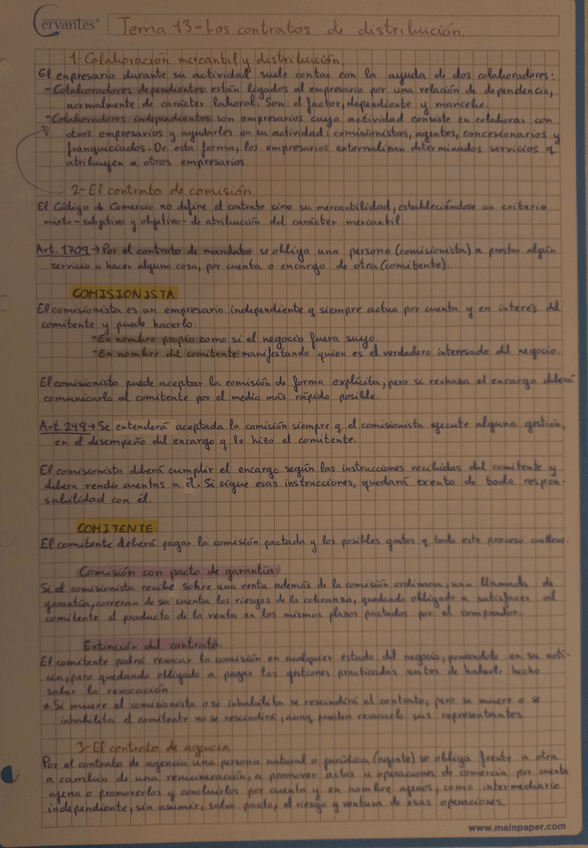 Cervantes®
Tema 13-Los contratos de distribución.
1-Colaboración mercantil y distribución
El empresario durante su actividad suele contar con la ayuda de dos colaboradores:
-Colaboradores dependientes: están ligados al empresario por una relación de dependencia,
normalmente de carácter laboral. Son: el factor, dependiente y mancebo.
-Colaboradores independientes: son empresarios cuya actividad consiste en colaborar con
otros empresarios y ayudarles en su actividad: comisionistas, agentes, concesionarios y
franquiciados. De esta forma, los empresarios externalizan determinados servicios q
atribuyen a otros empresarios.
2-El contrato de comisión
El Código de Comercio no define el contrato sino su mercantilidad, estableciéndose un criterio
mixto-subjetivo y objetivo-de atribución del carácter mercantil.
Art. 1709→Por el contrato de mandato se obliga una persona (comisionista) a prestar algún
servicio o hacer alguna cosa, por cuenta o encargo de otra (comitente).
COMISIONISTA
El comisionista es un empresario independiente q siempre actua por cuenta y en interés del
comitente y puede hacerlo
-En nombre propio como si el negocio fuera suyo
-En nombre del comitente manifestando quien es el verdadero interesado del negocio.
El comisionista puede aceptar la comisión de forma explícita, pero si rechaza el encargo deberá
comunicarlo al comitente por el medio más rápido posible.
Art 249→Se entenderá aceptada la comisión siempre q el comisionista ejecute alguna gestión,
en el desempeño del encargo q le hizo el comitente.
El comisionista deberá cumplir el encargo según las instrucciones recibidas del comitente y
debera rendir cuentas a él. Si sigue esas instrucciones, quedará exento de toda respon-
sabilidad con él.
COMITENTE
El comitente deberá pagar la comisión pactada y los posibles gastos q todo este proceso conlleve.
Comisión con pacto de garantía:
Si el comisionista recibe sobre una venta además de la comisión ordinaria, una llamada de
garantía, correrán de su cuenta los riesgos de la cobranza, quedando obligado a satisfacer al
comitente el producto de la venta en los mismos plazos pactados por el comprador.
Extinción del contrato.
El comitente podrá revocar la comisión en cualquier estado del negocio, poniéndolo en su noti-
cia, pero quedando obligado a pagar las gestiones practicadas antes de haberle hecho
saber la revocación.
* Si muere el comisionista o se inhabilita se rescindirá el contrato, pero si muere o se
inhabilita el comitente no se rescindirá, aunq pueden revocarlo sus representantes.
3-El contrato de agencia
Por el contrato de agencia una persona natural o jurídica (agente) se obliga frente a otra
a cambio de una remuneración, a promover actos u operaciones de comercio por cuenta
ajena o promoverlos y concluirlos por cuenta y en nombre ajenos, como intermediario
independiente, sin asumir, salvo pacto, el riesgo y ventura de esas operaciones.
www.mainpaper.com